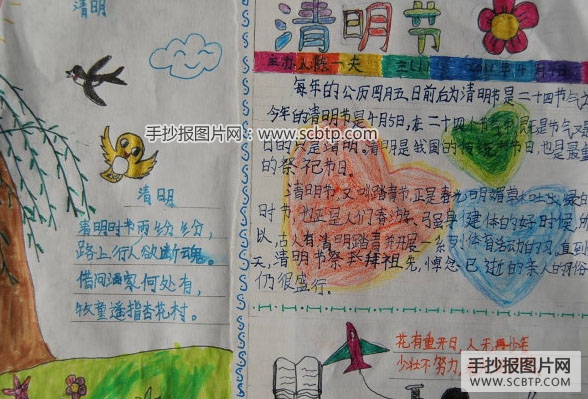 清明
清明
清明时节雨纷纷,
路上行人欲断魂。
借问酒家何处有,
牧童遥指杏花村。
清明节
主办人陈一夫
每年的公历四月五日前后为清明节是二十四节气
今年的清明节是4月5日,在二十四个节气
日的只是清明。清明是我国的传统节日,也是最
的祭祀节日。
清明节,又叫踏青节,正是春光明媚草木吐
时节,也正是人们春游
以,古人有清明踏青并开展一系列体育活动的
天,清明节祭祭拜祖先,悼念已逝的亲人的习俗
仍很盛行。
花有重开日,人无再少年
少壮不努力,
手抄报图片网:www.scbtp.com
手抄报图片网
WWW.SCBTP.COM